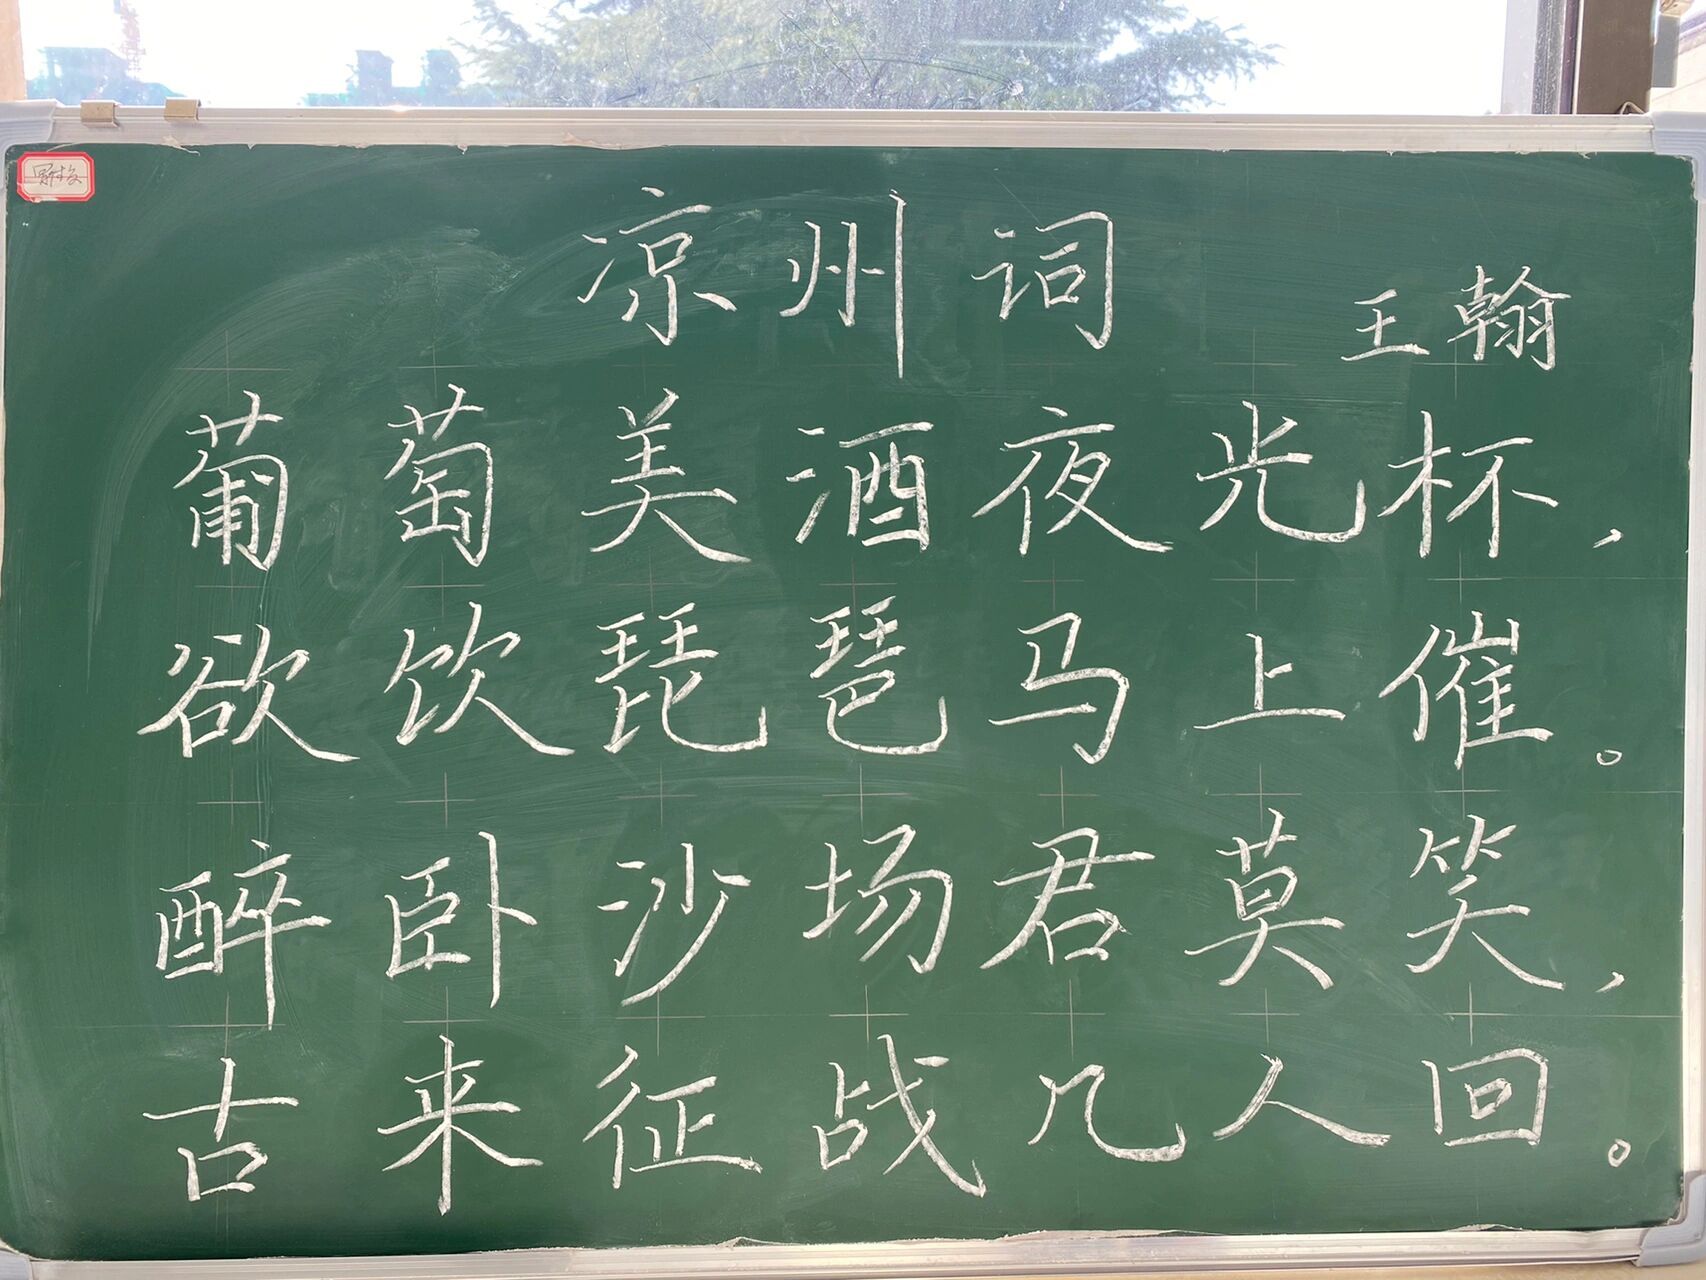 凉州词
王翰
葡萄美酒夜光杯，
欲饮琵琶马上催。
醉卧沙场君莫笑，
古来征战几人回。